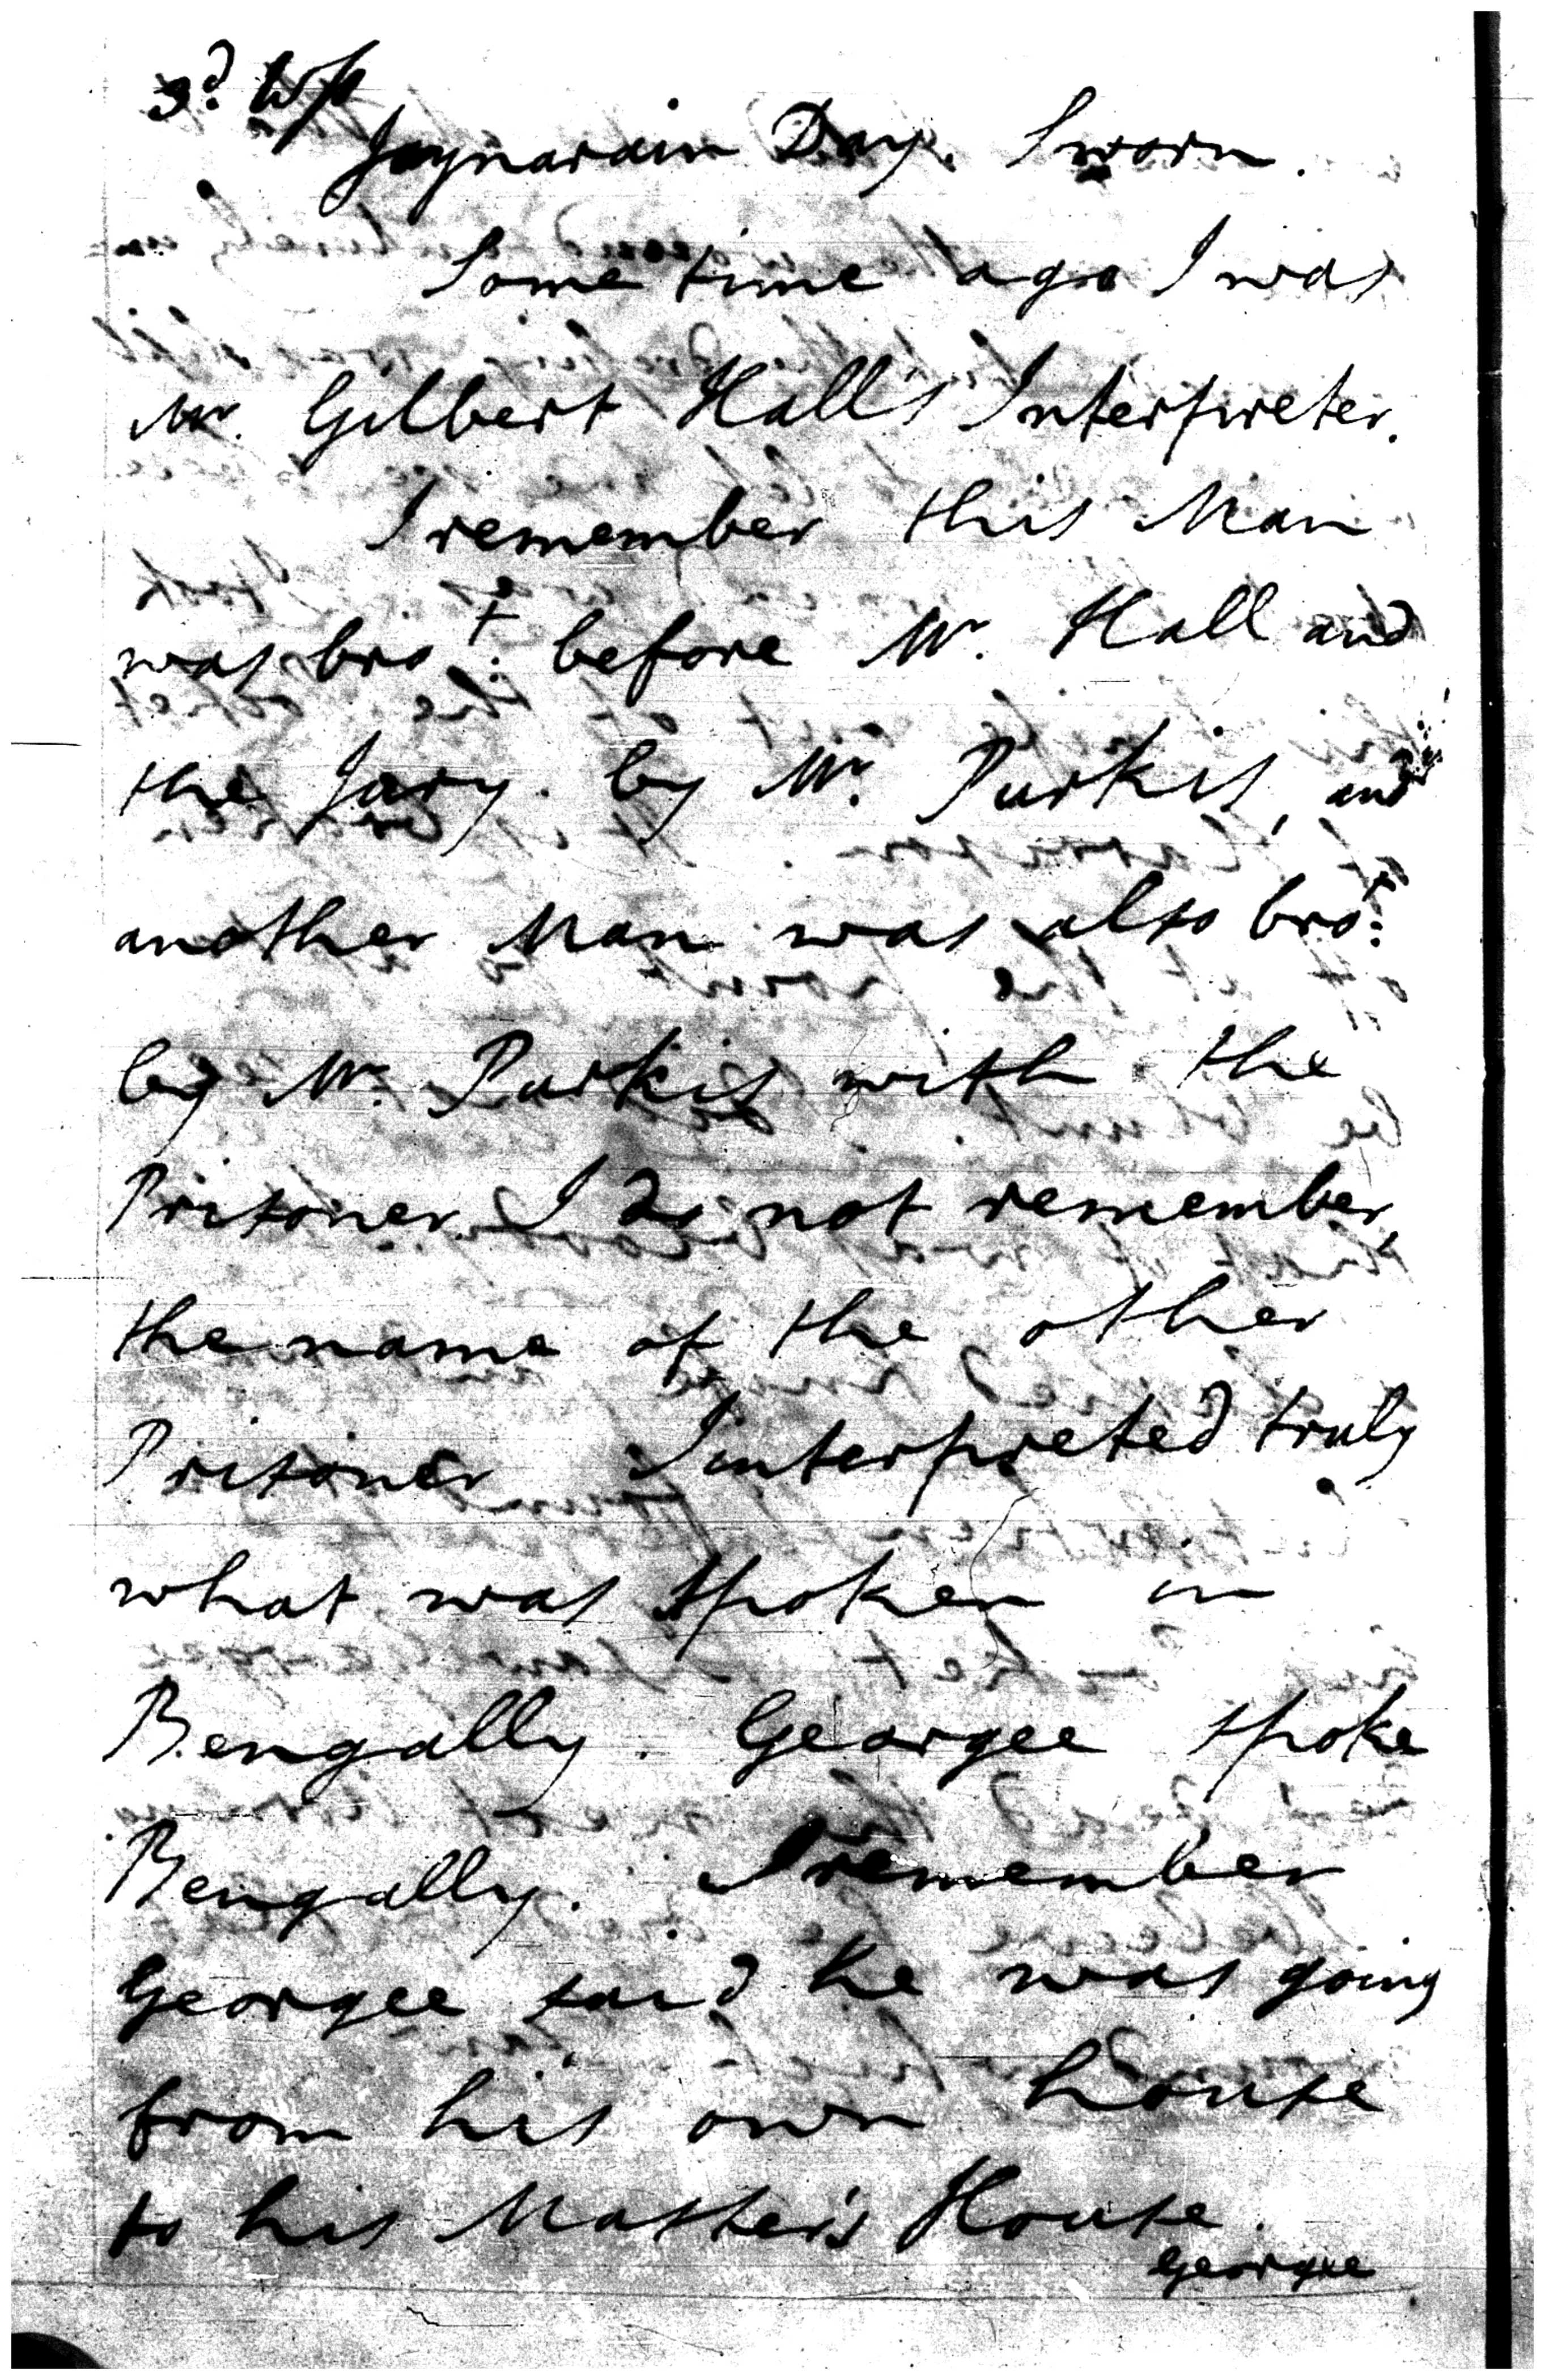 3d. Wss
Joynarain Day. Sworn.
Some time ago I was
Mr. Gilbert Hall's Interpreter.
I remember this Man
was brot. before Mr. Hall and
the Jury. by Mr. Purkis, and
another Man was also brot.
by Mr. Purkis with the
Prisoner. I do not remember
the name of the other
Prisoner Interpreted truly
what was spoken in
Bengally. Georgee spoke
Bengally. I remember
Georgee said he was going
from his own house
to his Master's House.
Georgee